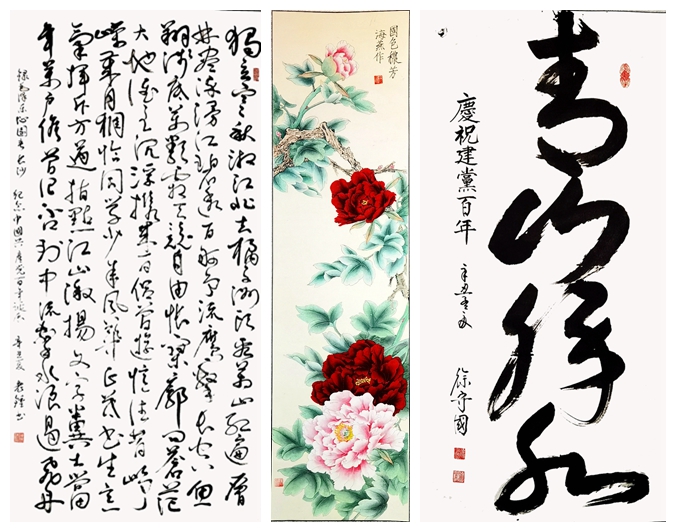 獨立寒秋湘江北去橘子洲頭看萬山紅遍層
林盡染漫江碧透百舸爭流鷹擊長空魚
翔淺底萬類霜天競自由悵寥廓問蒼茫
大地誰主沉浮攜來百侶曾遊憶往昔崢
嶸歲月稠恰同學少年風華正茂書生意
氣揮斥方遒指點江山激揚文字糞土當
年萬戶侯曾記否到中流擊水浪遏飛舟
錄毛澤東沁園春長沙 紀念中國共產党百年誕辰 辛丑夏 書
國色穠芳
海燕作
青山水
慶祝建黨百年 辛丑 徐守國